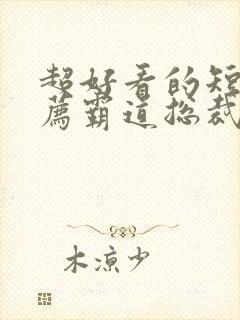 超好看的短
薦霸道总裁
木凉少